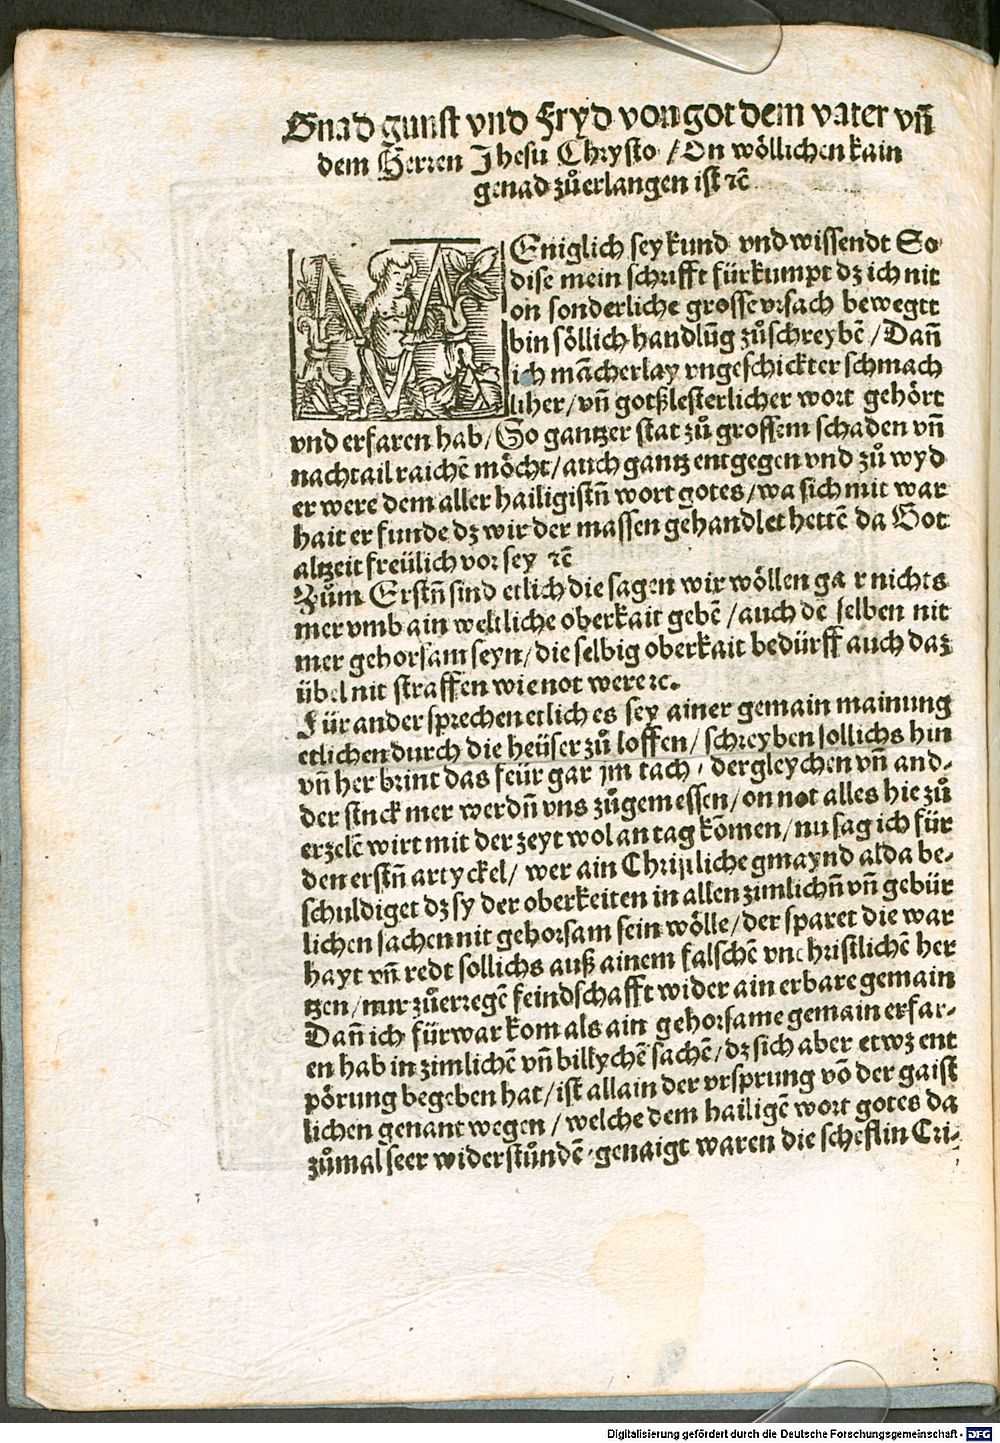 Gnad gunst vnd Fryd von got dem vater vñ
dem Herren Jhesu Chrysto / On wöllichen kain
genad zůerlangen ist ꝛc̄
MEniglich sey kund vnd wissendt So
dise mein schrifft fürkumpt dz ich nit
on sonderliche grosse vrsach bewegtt
bin söllich handlūg zůschreybē / Dañ
ich mācherlay vngeschickter schmach
liher / vñ gotßlesterlicher wort gehört
vnd erfaren hab / So gantzer stat zů grossem schaden vñ
nachtail raichē möcht / auch gantz entgegen vnd zů wyd
er were dem aller hailigistñ wort gotes / wa sich mit war
hait er funde dz wir der massen gehandlet hettē da Got
altzeit freülich vor sey ꝛc̄
Zům Erstñ sind etlich die sagen wir wöllen ga r nichts
mer vmb ain weltliche oberkait gebē / auch dē selben nit
mer gehorsam seyn / die selbig oberkait bedürff auch daz
übel nit straffen wie not were ꝛc.
Für ander sprechen etlich es sey ainer gemain mainung
etlichen durch die heüser zů loffen / schreyben sollichs hin
vñ her brint das feür gar jm tach / dergleychen vñ and-
der stuck mer werdñ vns zůgemessen / on not alles hie zů
erzelē wirt mit der zeyt wol an tag kōmen / nu sag ich für
den erstñ artyckel / wer ain Christliche gmaynd alda be-
schuldiget dz sy der oberkeiten in allen zimlichñ vñ gebür
lichen sachen nit gehorsam sein wölle / der sparet die war
hayt vñ redt sollichs auß ainem falschē vnchristlichē her
tzen / nur zůerregē feindschafft wider ain erbare gemain
Dañ ich fürwar kom als ain gehorsame gemain erfar-
en hab in zimlichē vñ billychē sachē / dz sich aber etwz ent
pörung begeben hat / ist allain der vrsprung vō der gaist
lichen genant wegen / welche dem hailigē wort gotes da
zůmal seer widerstůndē genaigt waren die scheflin Cri-
Digitalisierung gefördert durch die Deutsche Forschungsgemeinschaft - DFG